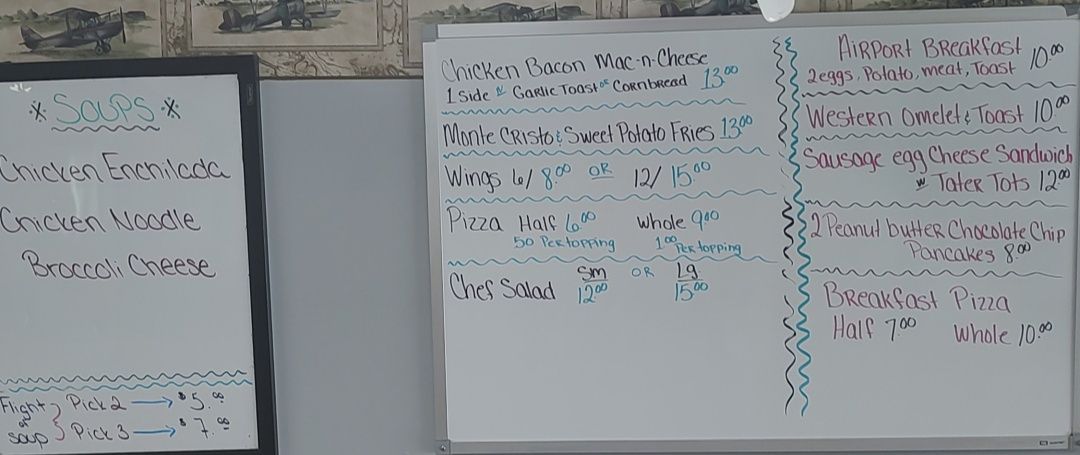 * Soups *
Chicken Enchilada
Chicken Noodle
Broccoli Cheese
Flight of Soup } Pick 2 → $5.00
Pick 3 → $7.00
Chicken Bacon Mac-n-Cheese
1 Side & Garlic Toast or Cornbread 13.00
Monte Cristo & Sweet Potato Fries 13.00
Wings 6/ 8.00 OR 12/ 15.00
Pizza Half 6.00 Whole 9.00
50 Per topping 1.00 Per topping
Chef Salad Sm 12.00 OR Lg 15.00
Airport Breakfast 10.00
2 eggs, Potato, meat, Toast
Western Omelet & Toast 10.00
Sausage egg Cheese Sandwich
w Tater Tots 12.00
2 Peanut butter Chocolate Chip
Pancakes 8.00
Breakfast Pizza
Half 7.00 Whole 10.00